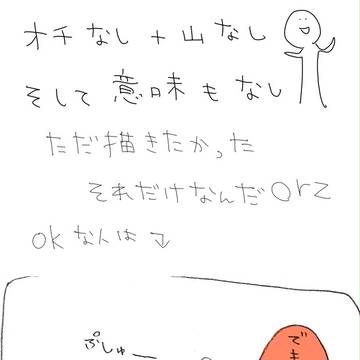 オチなし+山なし
そして意味もなし
ただ描きたかった
それだけなんだorz
OKな人は↴
ぷしゅー
でき